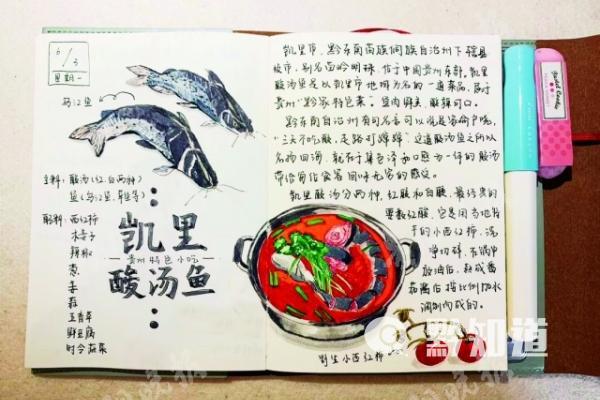 6/3
星期一
乌江鱼
主料:酸汤(红、白两种)
鱼(乌江鱼、草鱼等)
配料:西红柿
木姜子
辣椒
葱
姜
蒜
鲜豆腐
时令蔬菜
凯里
贵州特色小吃
酸汤鱼
凯里市,黔东南苗族侗族自治州下辖县
级市,别名苗岭明珠,位于中国贵州东部,凯里
酸汤鱼是以凯里市地理为名的一道菜品,属于
贵州“黔家特色菜”。鱼肉鲜美,酸辣可口。
黔东南自治州有句名言可以说是家喻户晓,
“三天不吃酸,走路打蹿蹿”这道酸汤鱼之所以
名扬四海,就在于集色泽和口感为一体的酸汤
带给前往食客回味无穷的感受。
凯里酸汤分两种,红酸和白酸,最经典的
要数红酸,它是用当地
的小西红柿,洗
净切碎,在锅中
放油后,熬成番
茄酱后按比例加水
调制而成的。
野生小西红柿
點知道